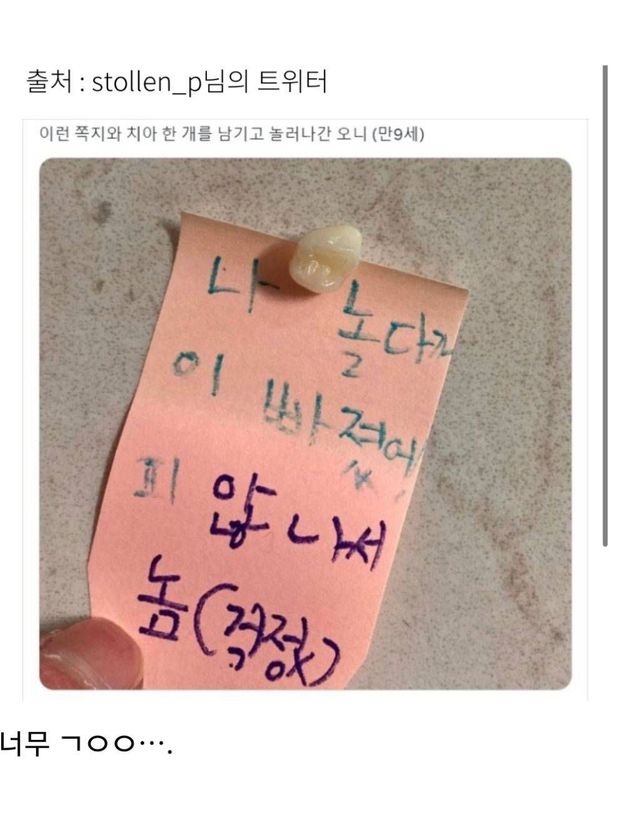 출처 : stollen_p님의 트위터
이런 쪽지와 치아 한 개를 남기고 놀러나간 오니 (만9세)
나 놀다가
이 빠졌어!
피 않 나서
놈(걱정X)
너무 ㄱㅇㅇ….